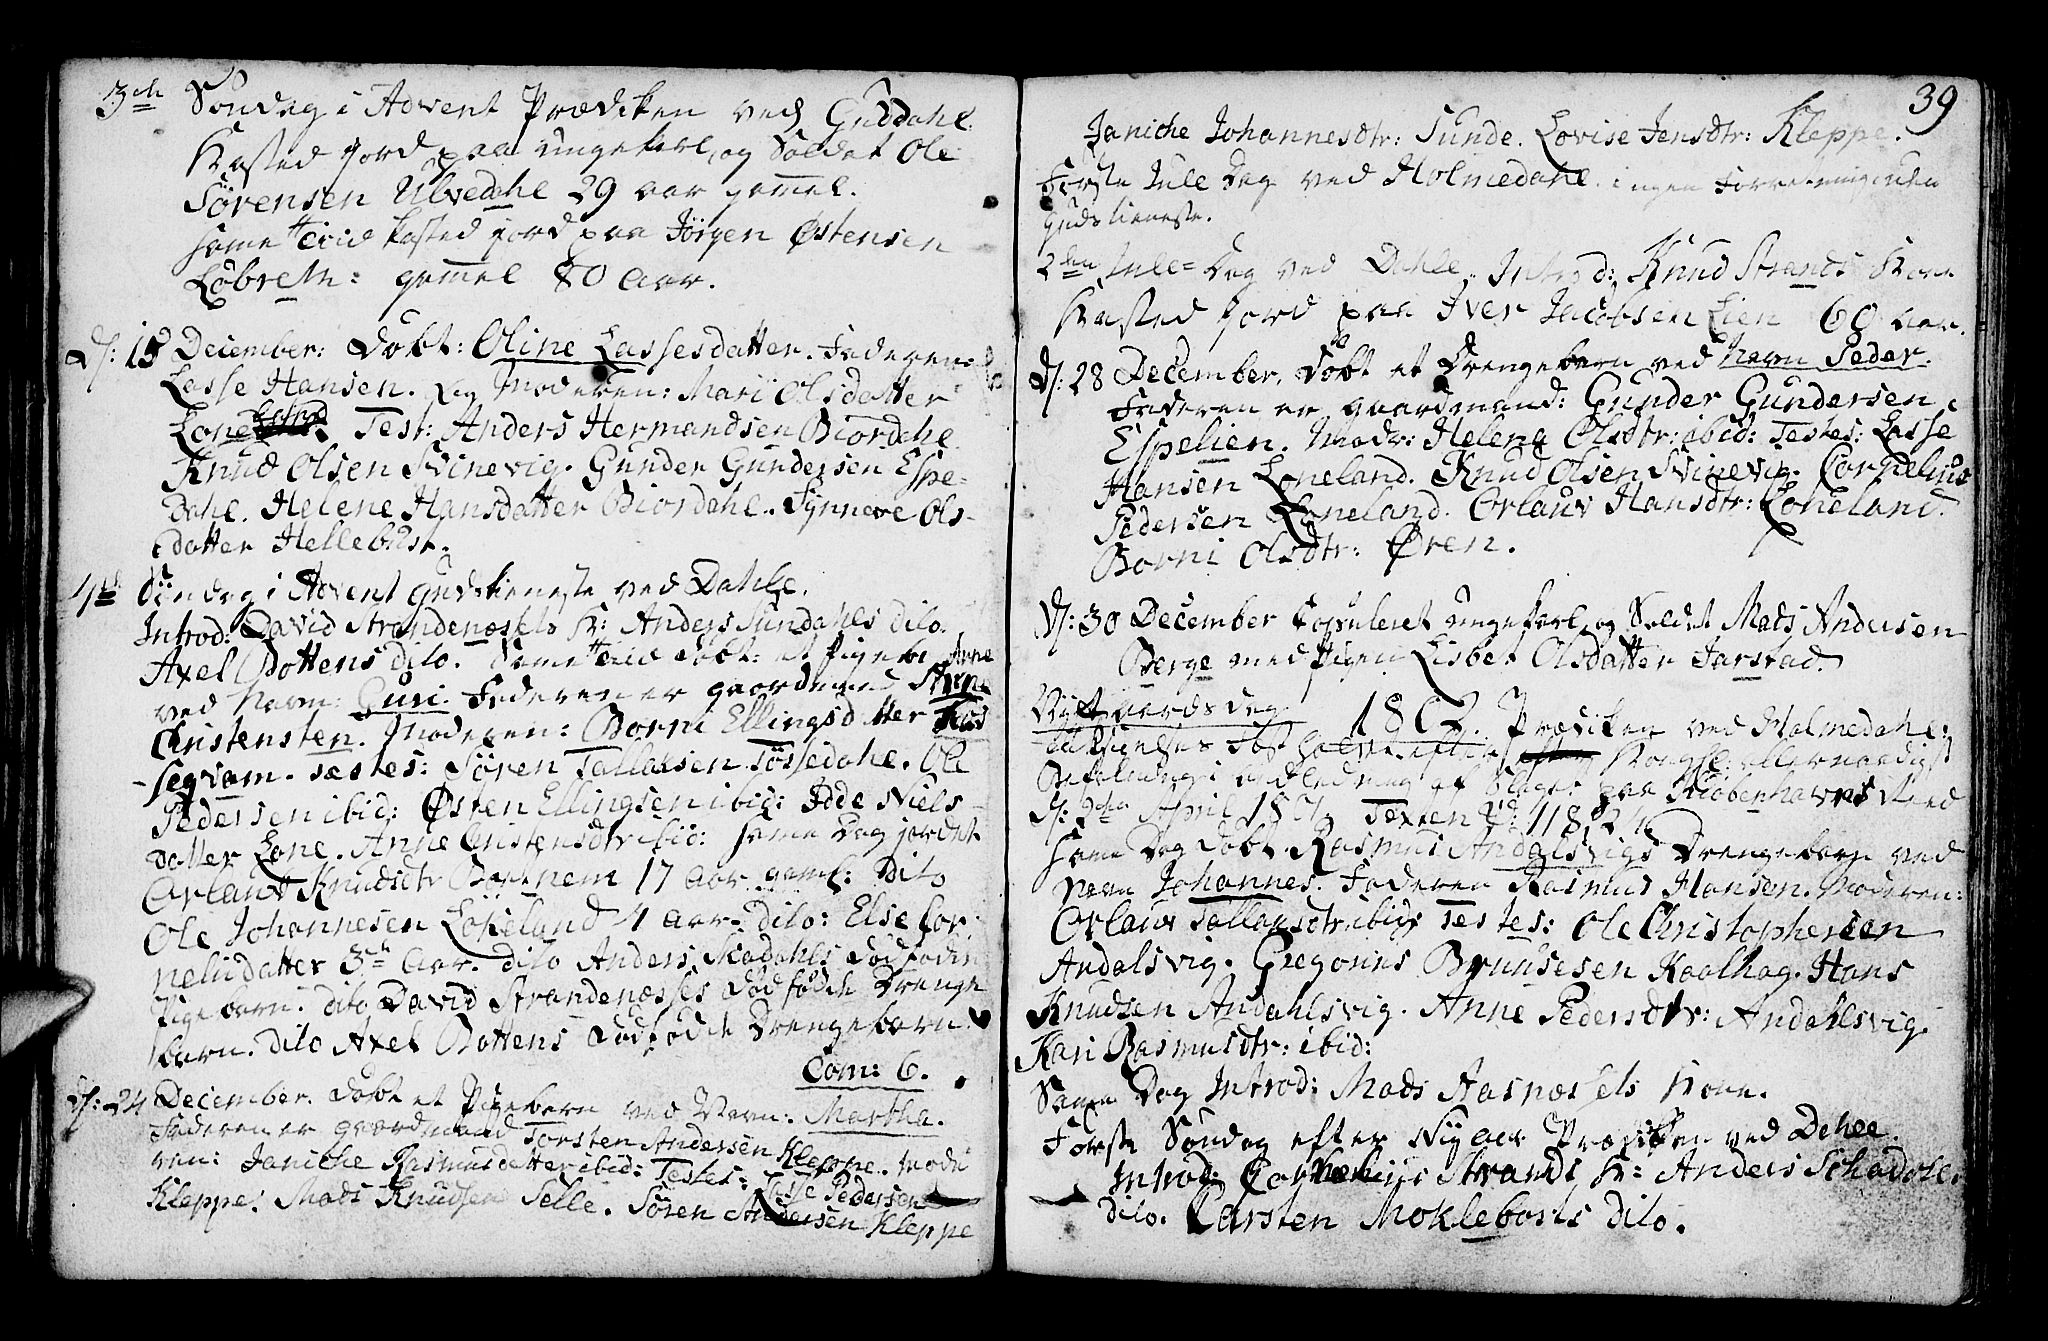 3de Søndag i Advent Prædiken ved Guddahl.
Kasted jord paa ungekarl, og Soldat Ole
Sørensen Ulvedahl 29 aar gamel.
same tiid kasted jord paa Jørgen Østensen
Løbrek: gamel 80 aar.
D: 15 December: Døbt: Oline Lassesdatter. Faderen:
Lasse Hansen. og Moderen: Mari Olsdatter
Loneland. Test: Anders Hermandsen Biordahl
Knud Olsen Svinevig. Gunder Gundersen Espe=
dahl. Helene Hansdatter Biordahl. Synneve Ols-
datter Hellebust.
4de Søndag i Advent Gudstieneste ved Dahle.
Introd: David Strandenæssets K: Anders Sundahls dito.
Axel Bottens dito. Same tiid døbt: et Pigebarn
ved Navn: Guri. Faderen er gaardmand
Christensten. Moderen: Borni Ellingsdatter
Testes: Søren Tollaksen Tøssedahl. Ole
Pedersen ibid: Østen Ellingsen ibid: Niels-
datter Lone. Anne Christensdtr ibid: same Dag jordet
Orlaug Knudsdtr 17 aar gaml: Dito
Ole Johannesen Løkeland 4 aar. dito: Else Cor-
neliidatter 3 aar. dito Anders Skadahls dødfødte
Pigebarn. dito David Strandenæsses dødfødte Drenge
barn. dito Axel Bottens dødfødte Drengebarn.
Com: 6.
D: 24 December. døbt et Pigebarn ved Navn: Martha.
Faderen er gaardmand Torsten Andersen Kleppe. Mode
ren: Janiche Rasmusdatter ibid: Testes: Lasse Pedersen
Kleppe. Mads Knudsen Selle. Søren Andersen Kleppe
39
Janiche Johannesdtr: Sunde. Lovise Jensdtr: Kleppe.
Første Jule Dag ved Holmedahl. ingen Forretning uden
Gudstieneste.
2den Jule-Dag ved Dahle. Introd: Knud Strands Kone
Kasted jord paa Iver Jacobsen Lien 60 aar.
D: 28 December, døbt et Drengebarn ved Navn Peder.
Faderen er gaardmand: Gunder Gundersen
Espelien. Modr: Helena Olsdtr: ibid: Testes: Lasse
Hansen Loneland. Knud Olsen Svinevig. Cornelius
Pedersen Loneland. Orlaug Hansdtr: Loneland.
Borni Olsdtr: Øren.
D: 30 December Copuleret ungekarl og Soldat Mads Andersen
Berge med Pigen Lisbet Olsdatter Jarstad.
Nytaarsdag 1802. Prædiken ved Holmedahl:
Kongel: allernaadigst
Befalning i anledning af Slaget paa Kiøbenhavns Reed
D: 2den April 1801. Texten 118
same Dag døbt Rasmus Andalsvigs Drengebarn ved
Navn Johannes. Faderen Rasmus Hansen. Moderen:
Orlaug Tollaksdtr ibid: Testes: Ole Christophersen
Andalsvig. Gregorius Kaalhag. Hans
Knudsen Andahlsvig. Anne Pedersdtr: Andahlsvig.
Kari Rasmusdtr: ibid:
Same Dag Introd: Mads Aasnæssets Kone.
Første Søndag efter Nyaar Prædiken ved Dahle.
Introd: Cornelius Strands K: Anders Schadahl.
dito. Carsten Moklebosts dito.